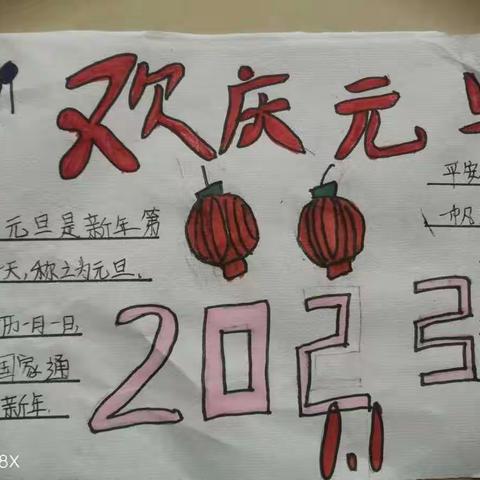 欢庆元
元旦是新年第
天，称之为元旦，
历一月一日，
国家通
新年.
平安
一帆
2023
8X